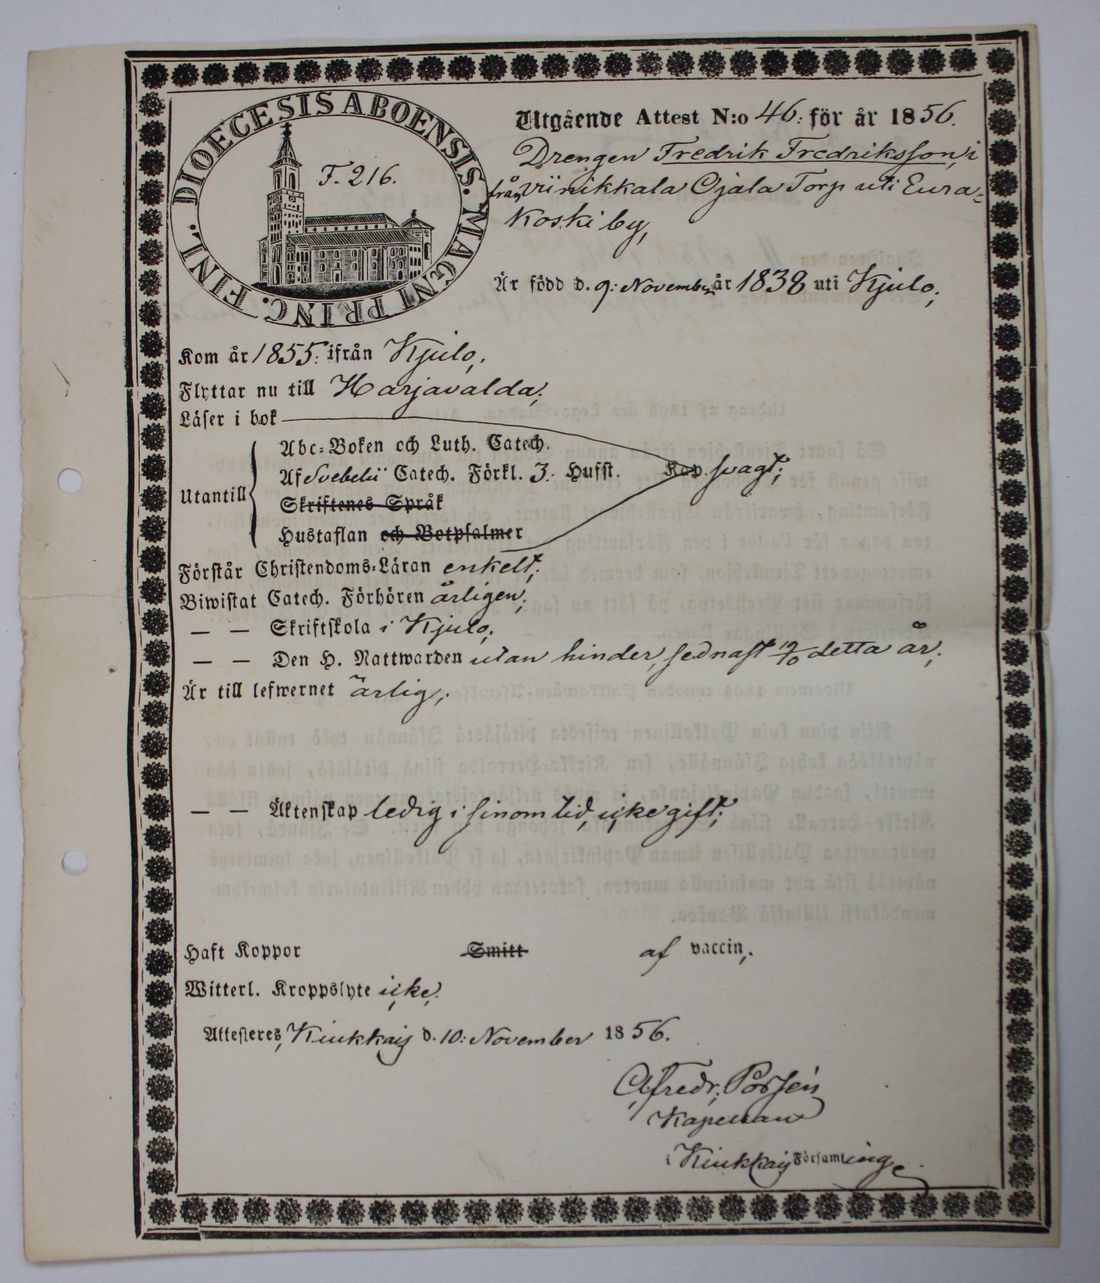 DIOECESIS ABOENSIS. MAGNI PRINC. FINL.
F. 216.
Utgående Attest N:o 46. för år 1856.
Drengen Fredrik Fredriksson, i
från Viinikkala Ojala Torp uti Eura-
Koski by,
Är född d. 9: November år 1838 uti Kjulo,
Kom år 1855: ifrån Kjulo,
Flyttar nu till Harjavalda,
Läser i bok
Utantill
Abc-Boken och Luth. Catech.
Af Svebelii Catech. Förkl. 3. Hufst. Kap. svagt;
Skriftenes Språk
Hustaflan och Botpsalmer
Förstår Christendoms-Läran enkelt;
Biwistat Catech. Förhören årligen,
— — Skriftskola i Kjulo,
— — Den H. Nattwarden utan hinder, sednast 19/10 detta år,
Är till lefwernet ärlig,
— — Äktenskap ledig i sinom tid, icke gift;
Haft Koppor Smitt af vaccin,
Witterl. Kroppslyte icke.
Attesteres, Kiukkais d. 10: November 1856.
Alfredr. Porsén
Kapellan
i Kiukkais Församling